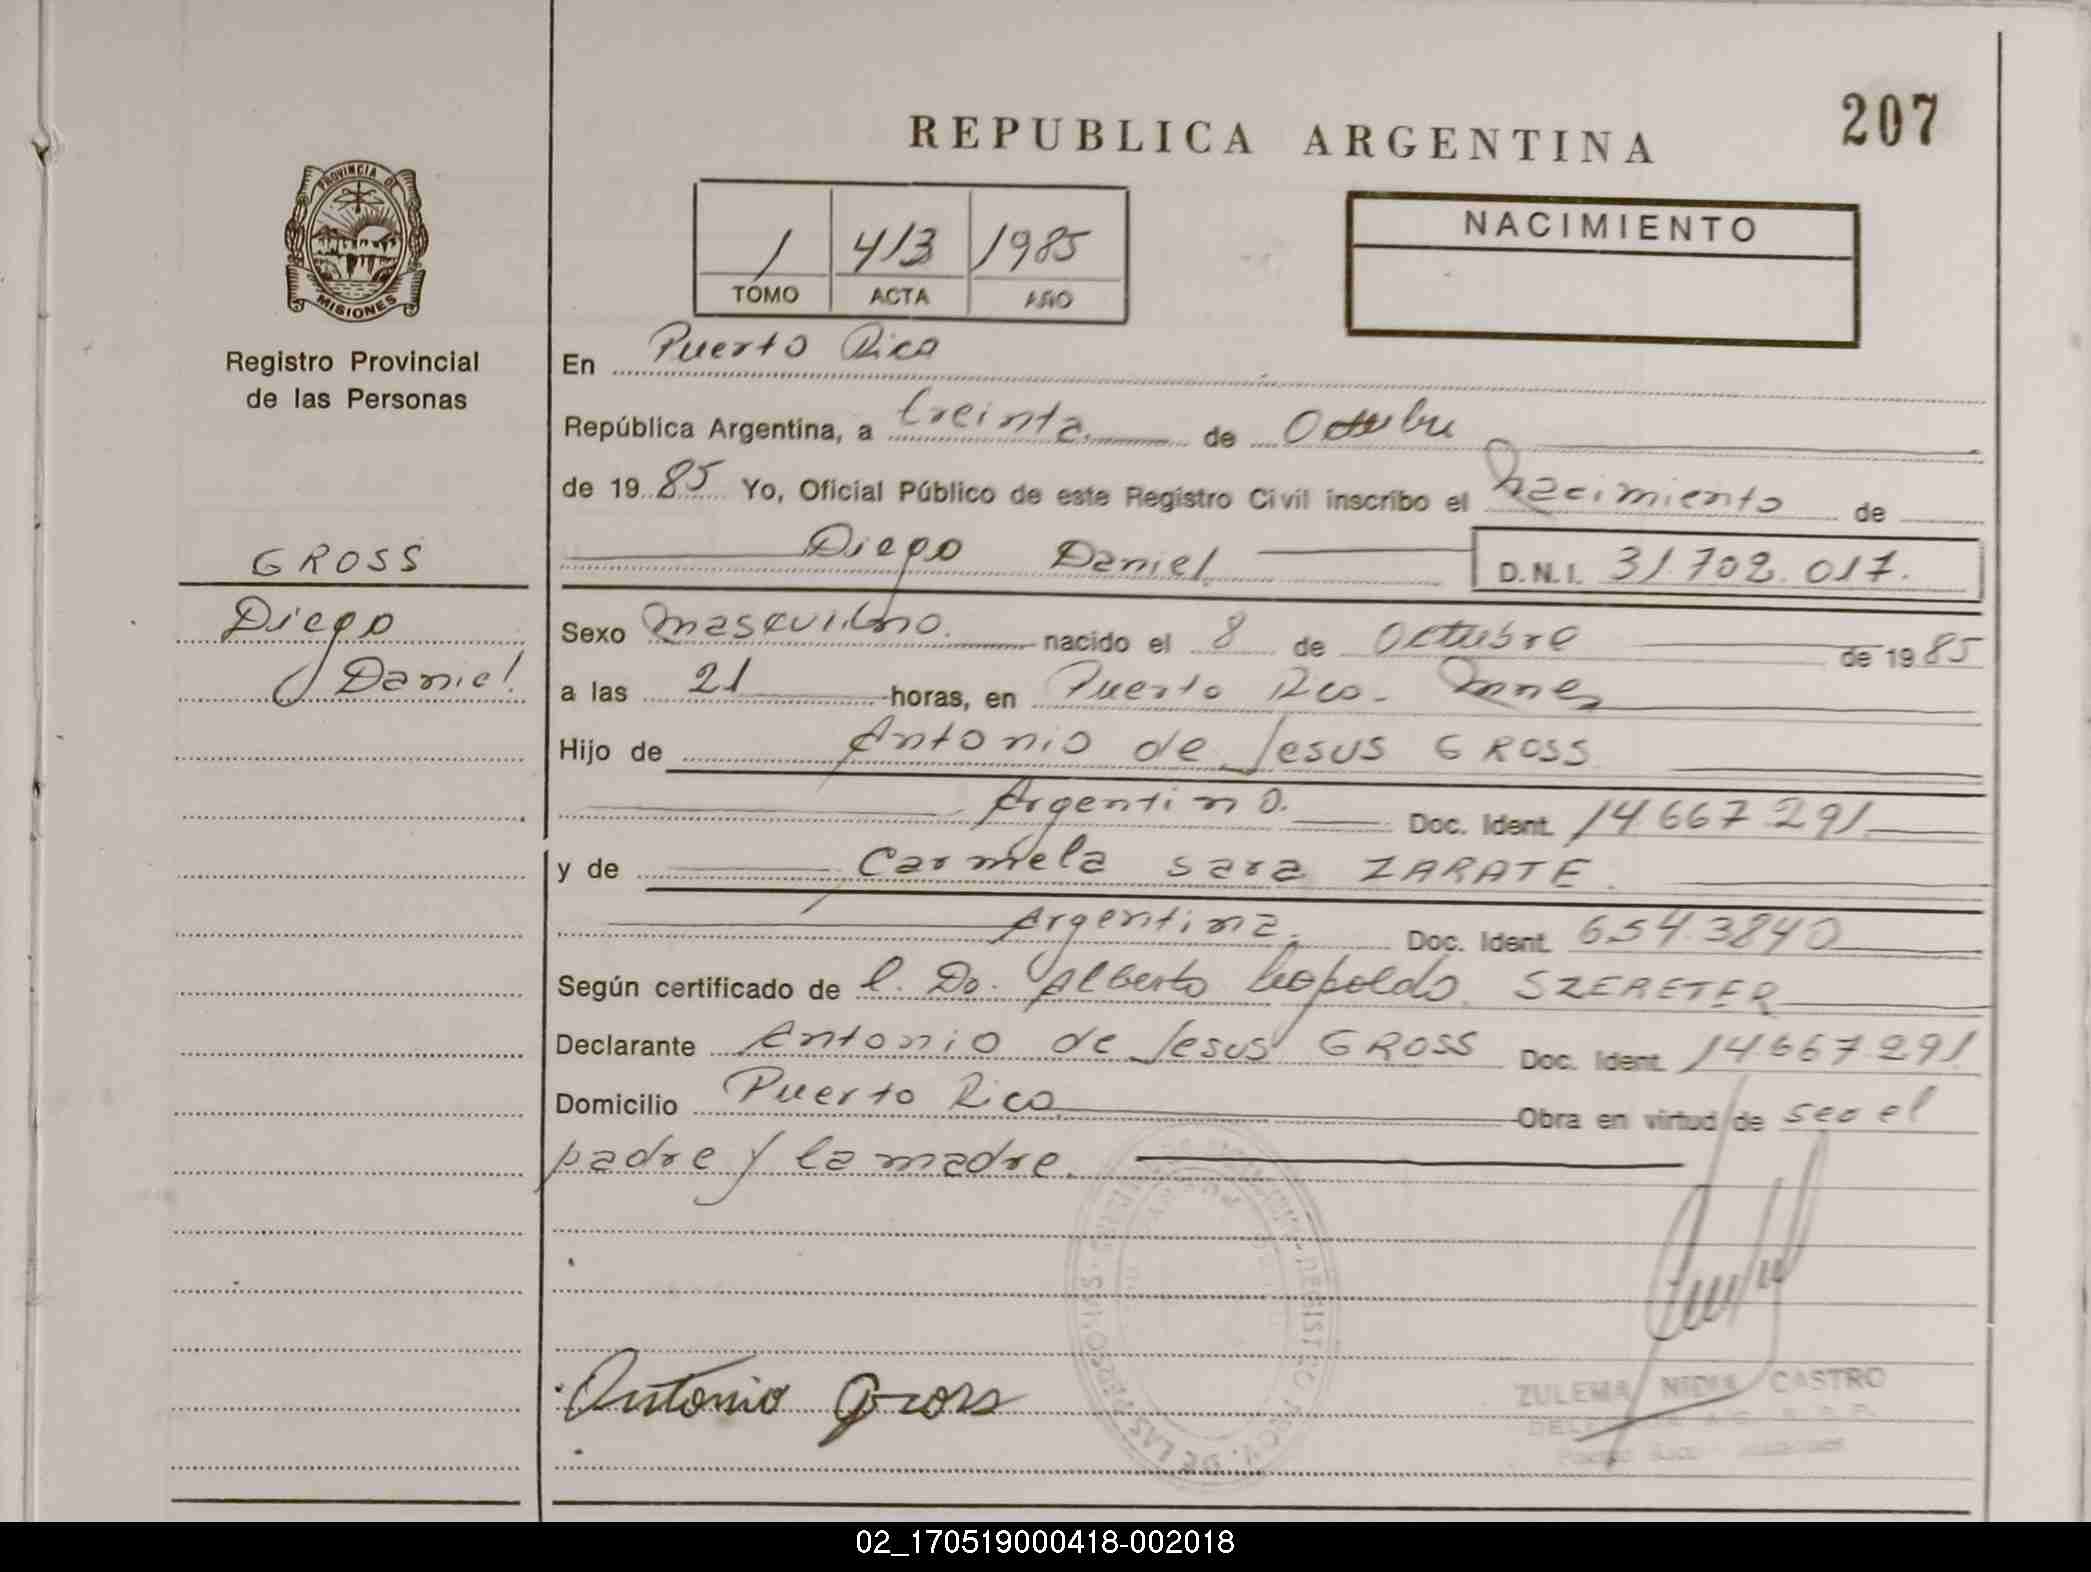 207
REPUBLICA ARGENTINA
PROVINCIA DE
MISIONES
Registro Provincial
de las Personas
1 413 1985
TOMO ACTA AÑO
NACIMIENTO
En Puerto Rico
República Argentina, a treinta de Octubre
de 1985 Yo, Oficial Público de este Registro Civil inscribo el nacimiento de
GROSS
Diego
Daniel
Diego Daniel D.N.I. 31.702.017.
Sexo masculino nacido el 8 de Octubre de 1985
a las 21 horas, en Puerto Rico
Hijo de Antonio de Jesus GROSS
Argentino. Doc. Ident. 14.667.291
y de Carmela Sara ZARATE.
Argentina. Doc. Ident. 6.543.840
Según certificado de Alberto Leopoldo SZERETER
Declarante Antonio de Jesus GROSS Doc. Ident. 14.667.291
Domicilio Puerto Rico Obra en virtud de seo el
padre y la madre.
Antonio Gross
ZULEMA NIDIA CASTRO
02_170519000418-002018